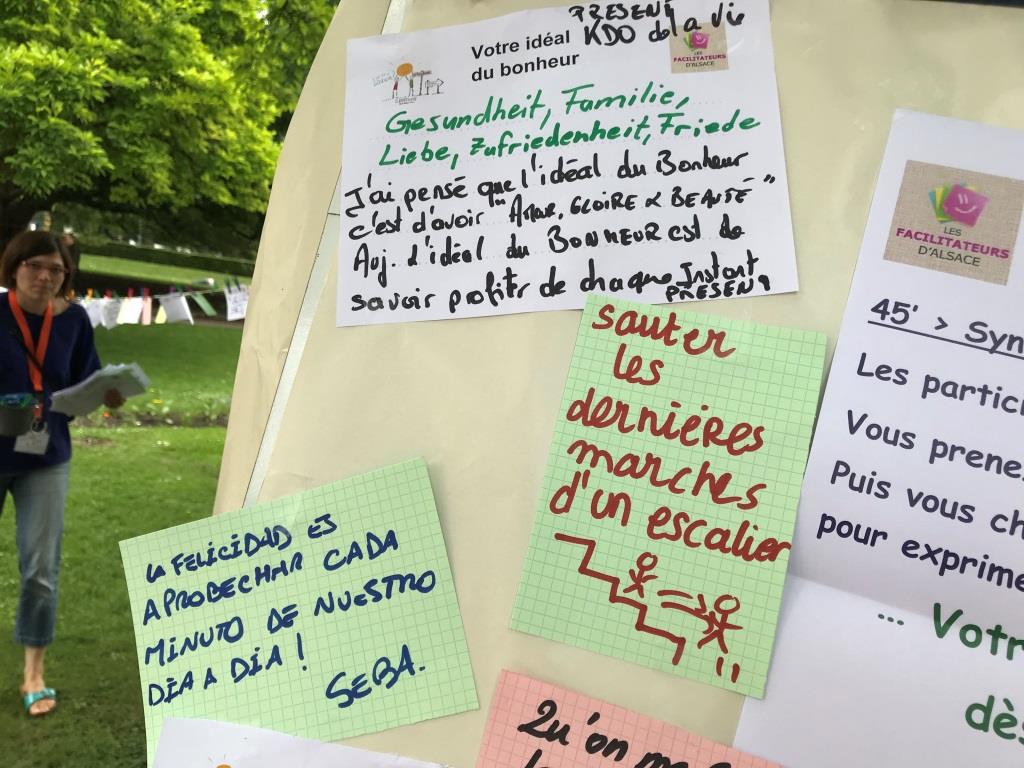 PRESENT
KDO de la vie
Votre idéal
du bonheur
LES
FACILITATEURS
D'ALSACE
Gesundheit, Familie,
Liebe, Zufriedenheit, Friede
J'ai pensé que l'idéal du Bonheur
c'est d'avoir "AMOUR, GLOIRE & BEAUTÉ"
Auj. l'idéal du BONHEUR est de
savoir profiter de chaque Instant
PRESENT
sauter
les
dernières
marches
d'un escalier
LA FELICIDAD ES
APROBECHAR CADA
MINUTO DE NUESTRO
DIA A DIA !
SEBA.
Qu'on
LES
FACILITATEURS
D'ALSACE
45' > Syn
Les partici
Vous prene
Puis vous ch
pour exprime
... Votr
dès